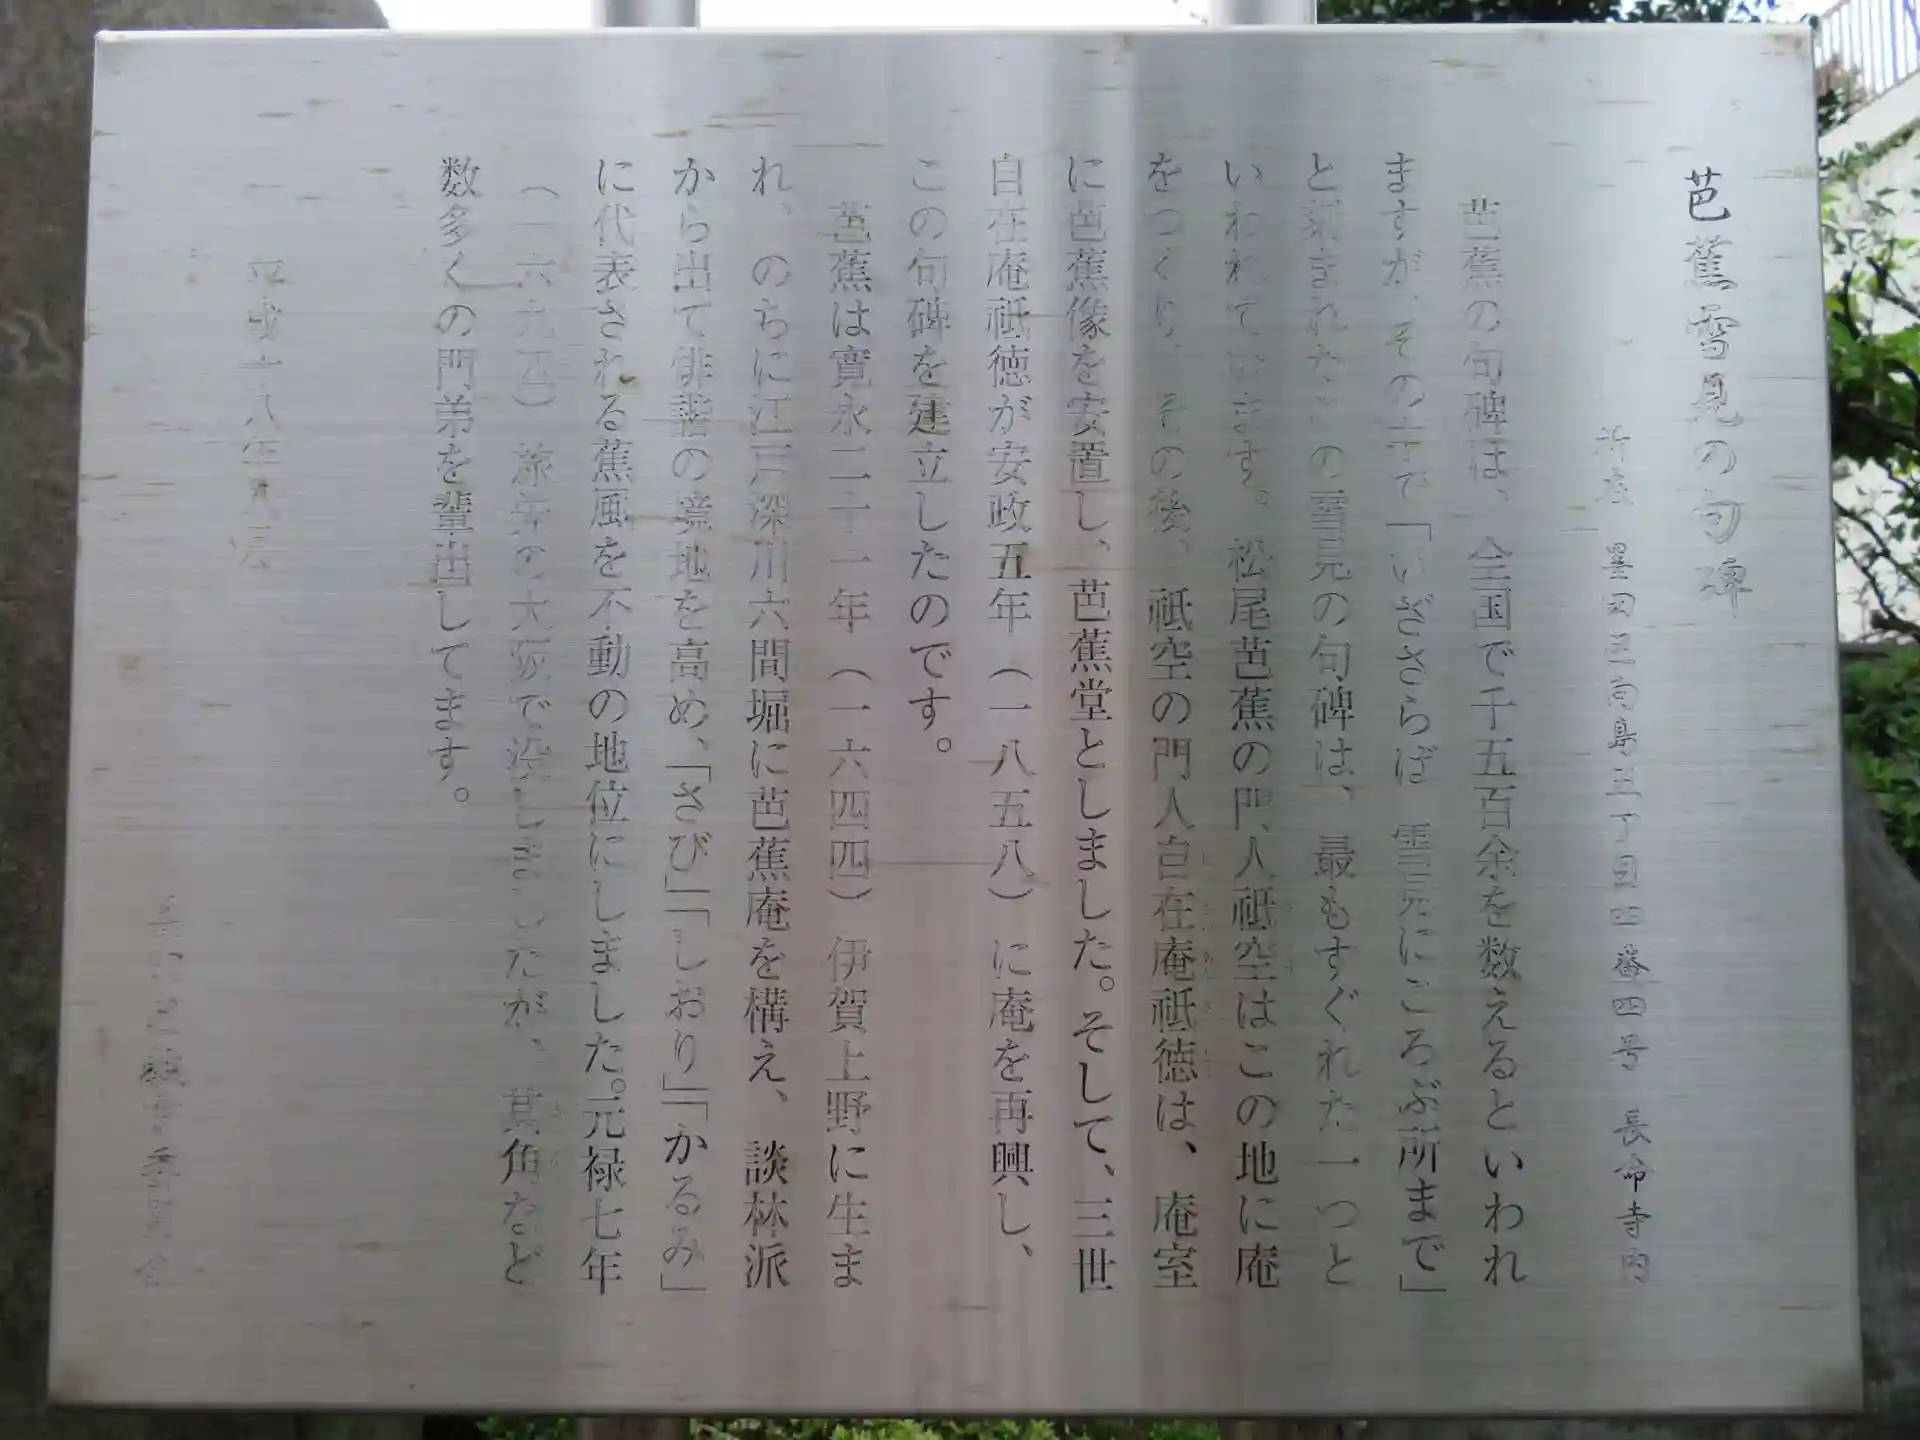 芭蕉雪見の句碑
所在 墨田区向島五丁目四番四号 長命寺内
芭蕉の句碑は、全国で千五百余を数えるといわれ
ますが、その中で「いざさらば 雪見にころぶ所まで」
と刻まれたこの雪見の句碑は、最もすぐれた一つと
いわれています。松尾芭蕉の門人祗空はこの地に庵
をつくり、その後、祗空の門人自在庵祗徳は、庵室
に芭蕉像を安置し、芭蕉堂としました。そして、三世
自在庵祗徳が安政五年（一八五八）に庵を再興し、
この句碑を建立したのです。
芭蕉は寛永二十一年（一六四四）伊賀上野に生ま
れ、のちに江戸深川六間堀に芭蕉庵を構え、談林派
から出て俳諧の境地を高め、「さび」「しおり」「かるみ」
に代表される蕉風を不動の地位にしました。元禄七年
（一六九四）旅先の大阪で没しましたが、其角など
数多くの門弟を輩出してます。
平成十八年三月
墨田区教育委員会